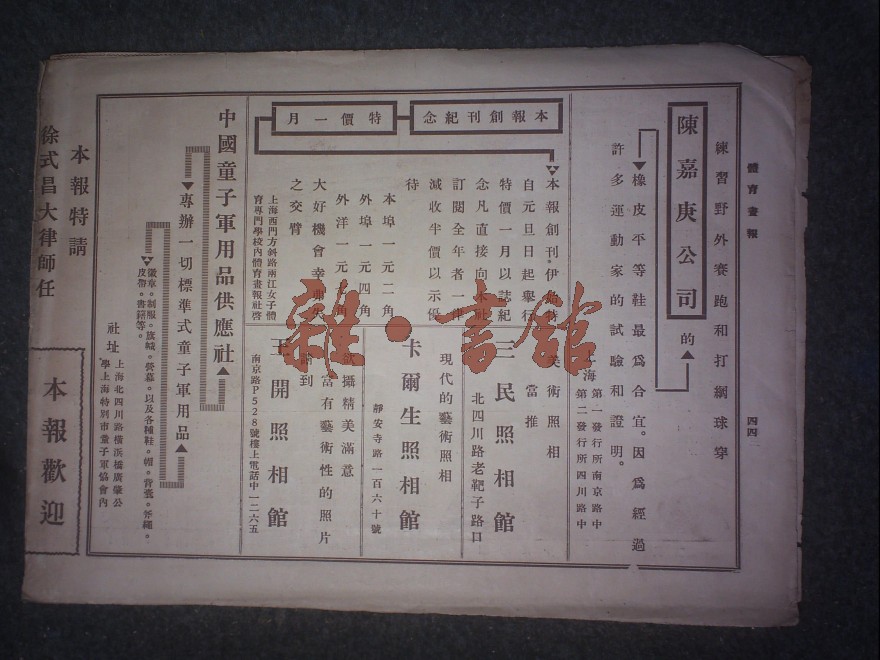 體育畫報
四四
練習野外賽跑和打網球穿
陳嘉庚公司
的
橡皮平等鞋最爲合宜。因爲經過
許多運動家的試驗和證明。
上海
第一發行所南京路中
第二發行所四川路中
本報創刊紀念
特價一月
本報創刊。伊始特
自元旦日起舉行
特價一月以誌紀
念凡直接向本社
訂閱全年者一律
減收半價以示優
待
本埠一元二角
外埠一元四角
外洋一元
角
大好機會幸弗失
之交臂
上海西門方斜路兩江女子體
育專門學校內體育畫報社啓
美術照相
當推
三民照相館
北四川路老靶子路口
現代的藝術照相
卡爾生照相館
靜安寺路一百六十號
攝精美滿意
富有藝術性的照片
到
王開照相館
南京路P528號樓上電話中一二六五
中國童子軍用品供應社
專辦一切標準式童子軍用品
徽章。制服。旗幟。營幕。以及各種鞋。帽。背囊。斧繩。
皮帶。書籍等。
社址
上海北四川路橫浜橋廣肇公
學上海特別市童子軍協會內
本報特請
徐式昌大律師任
本報歡迎
雜·書館